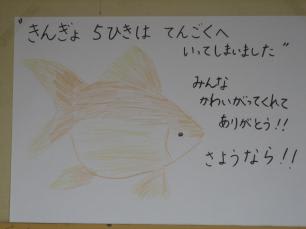 "きんぎょ 5ひきは てんごくへ
いってしまいました"
みんな
かわいがってくれて
ありがとう!!
さようなら!!